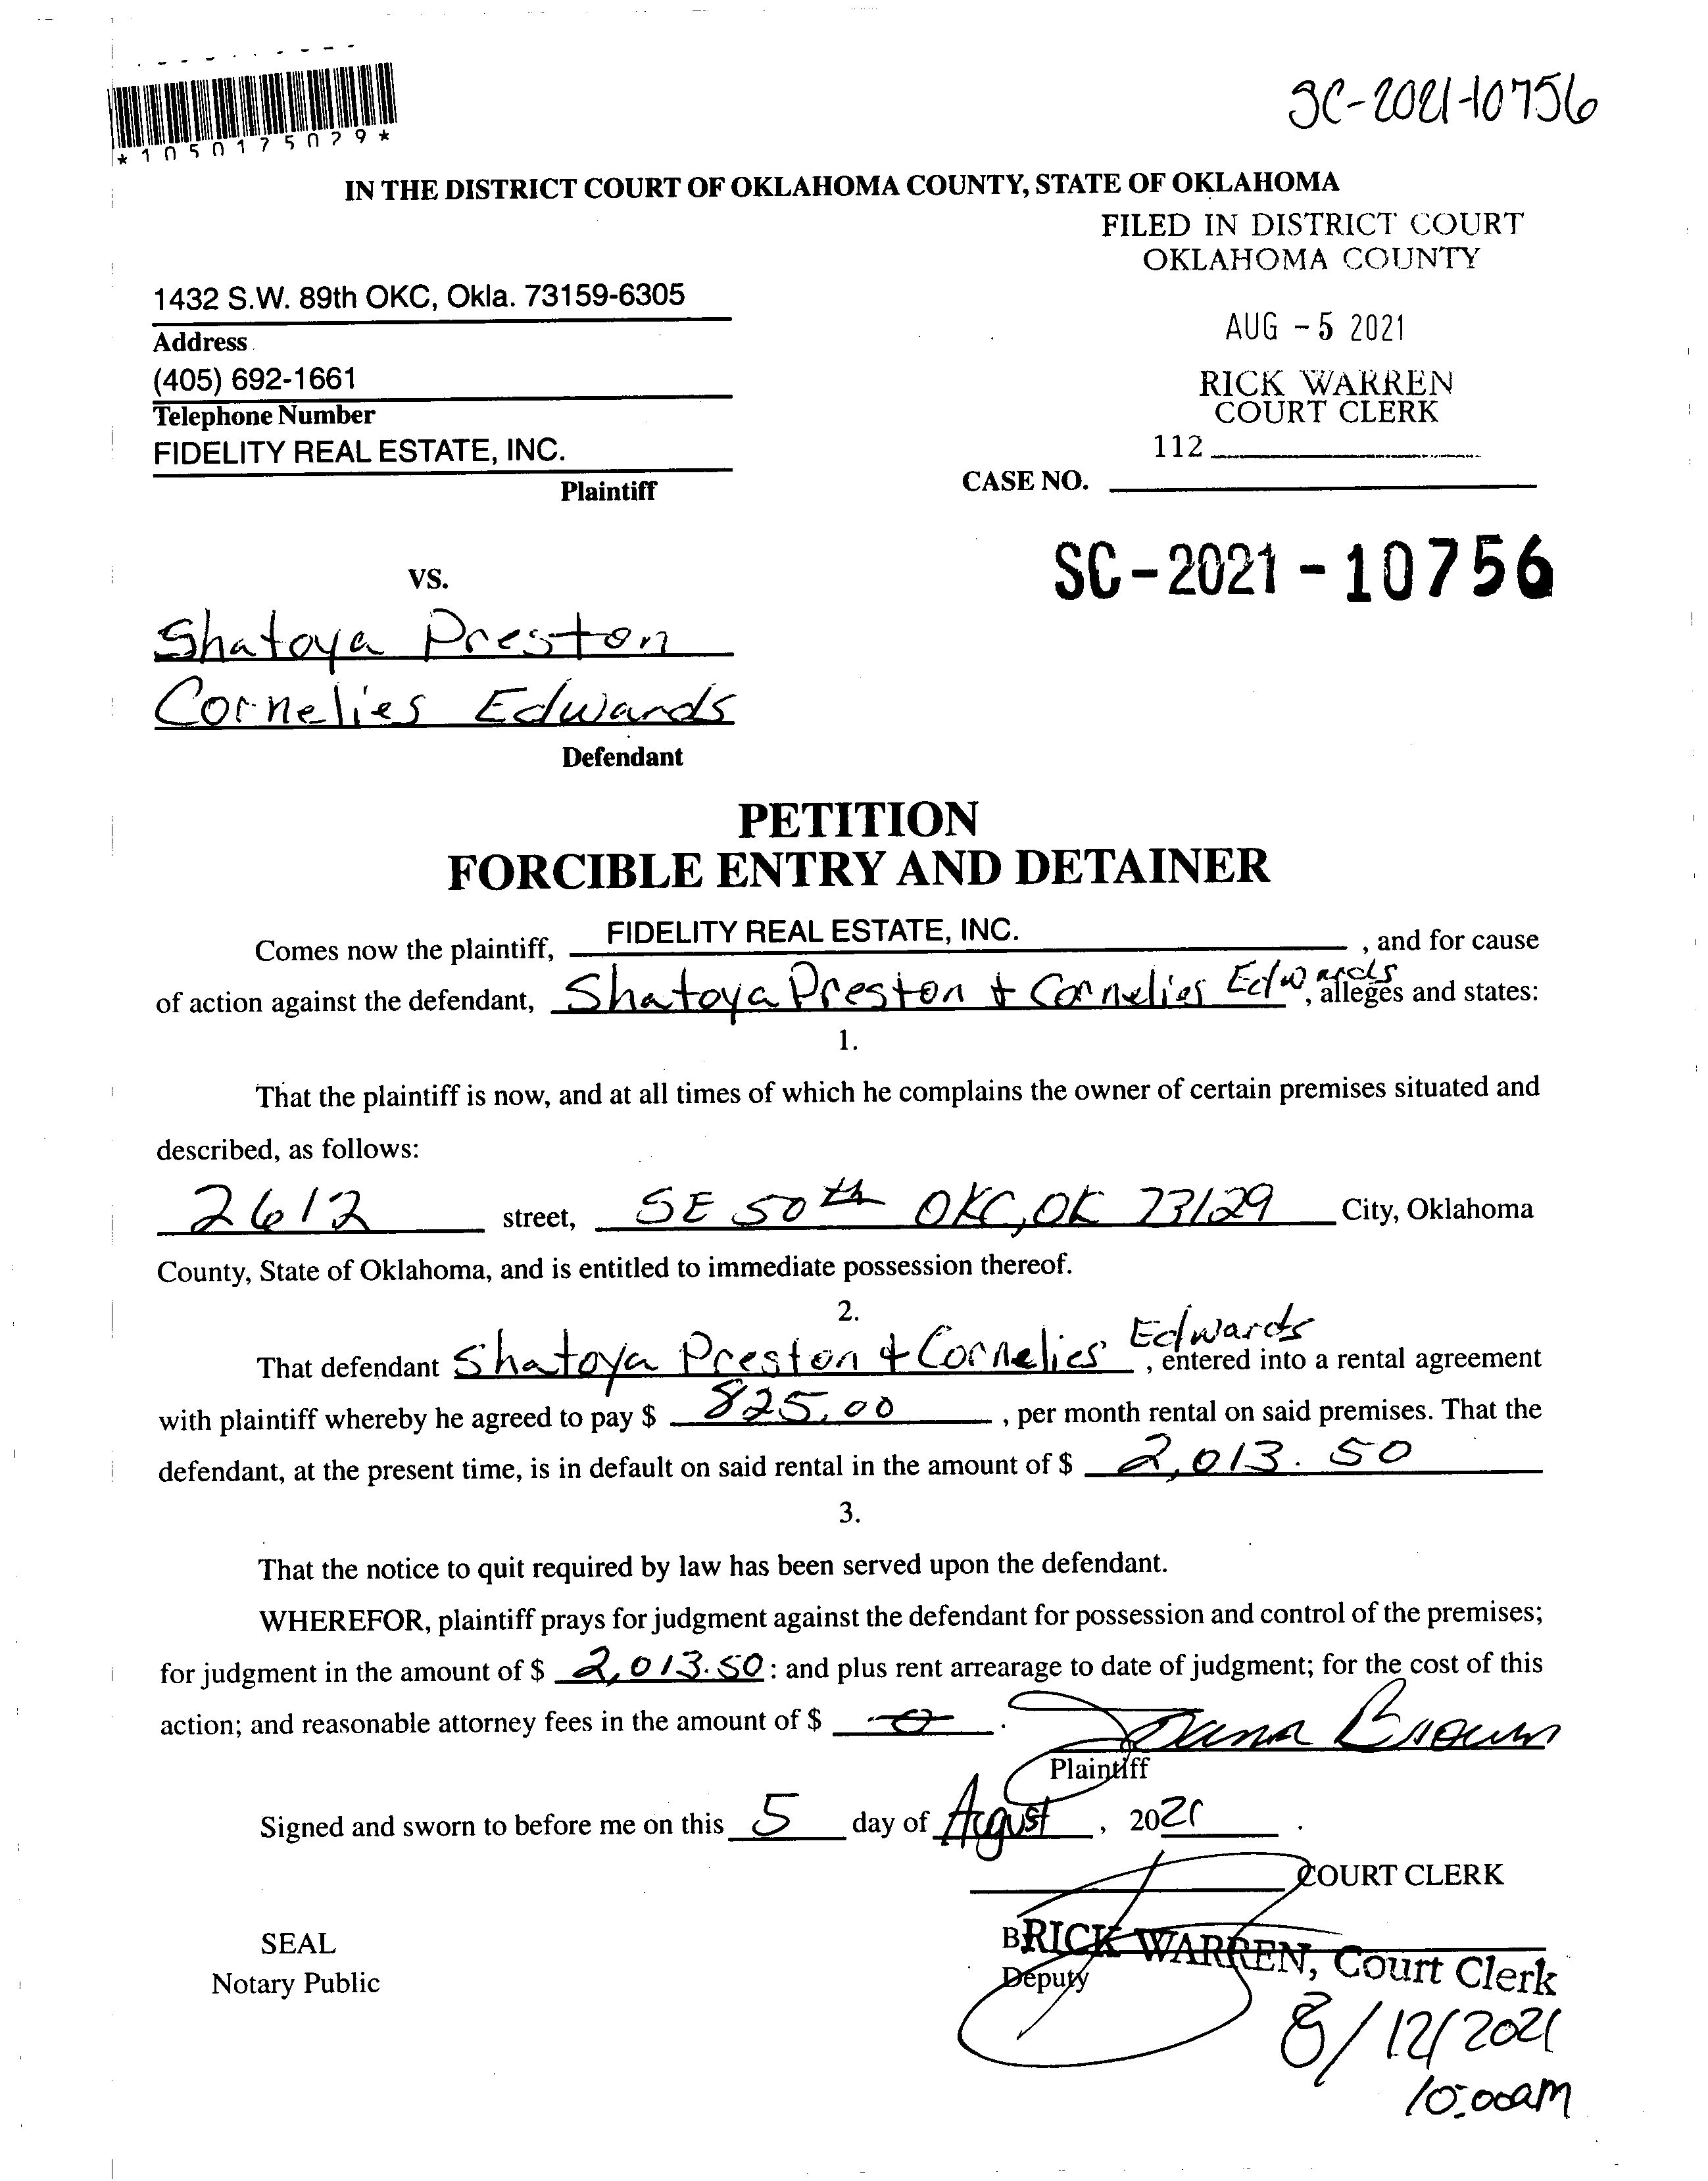 SC-2021-10756
*1050175079*
IN THE DISTRICT COURT OF OKLAHOMA COUNTY, STATE OF OKLAHOMA
FILED IN DISTRICT COURT
OKLAHOMA COUNTY
1432 S.W. 89th OKC, Okla. 73159-6305
Address
AUG - 5 2021
(405) 692-1661
Telephone Number
RICK WARREN
COURT CLERK
FIDELITY REAL ESTATE, INC.
112
Plaintiff
CASE NO.
SC-2021-10756
VS.
Shatoya Preston
Cornelies Edwards
Defendant
PETITION
FORCIBLE ENTRY AND DETAINER
Comes now the plaintiff, FIDELITY REAL ESTATE, INC. , and for cause
of action against the defendant, Shatoya Preston + Cornelies Edwards, alleges and states:
1.
That the plaintiff is now, and at all times of which he complains the owner of certain premises situated and
described, as follows:
2612 street, SE 50th OKC, OK 73129 City, Oklahoma
County, State of Oklahoma, and is entitled to immediate possession thereof.
2.
That defendant Shatoya Preston + Cornelies Edwards, entered into a rental agreement
with plaintiff whereby he agreed to pay $ 825.00 , per month rental on said premises. That the
defendant, at the present time, is in default on said rental in the amount of $ 2,013.50
3.
That the notice to quit required by law has been served upon the defendant.
WHEREFOR, plaintiff prays for judgment against the defendant for possession and control of the premises;
for judgment in the amount of $ 2,013.50: and plus rent arrearage to date of judgment; for the cost of this
action; and reasonable attorney fees in the amount of $ 0.
Brown
Plaintiff
Signed and sworn to before me on this 5 day of August, 2021.
COURT CLERK
SEAL
Notary Public
RICK WARREN, Court Clerk
Deputy
8/12/2021
10:00am